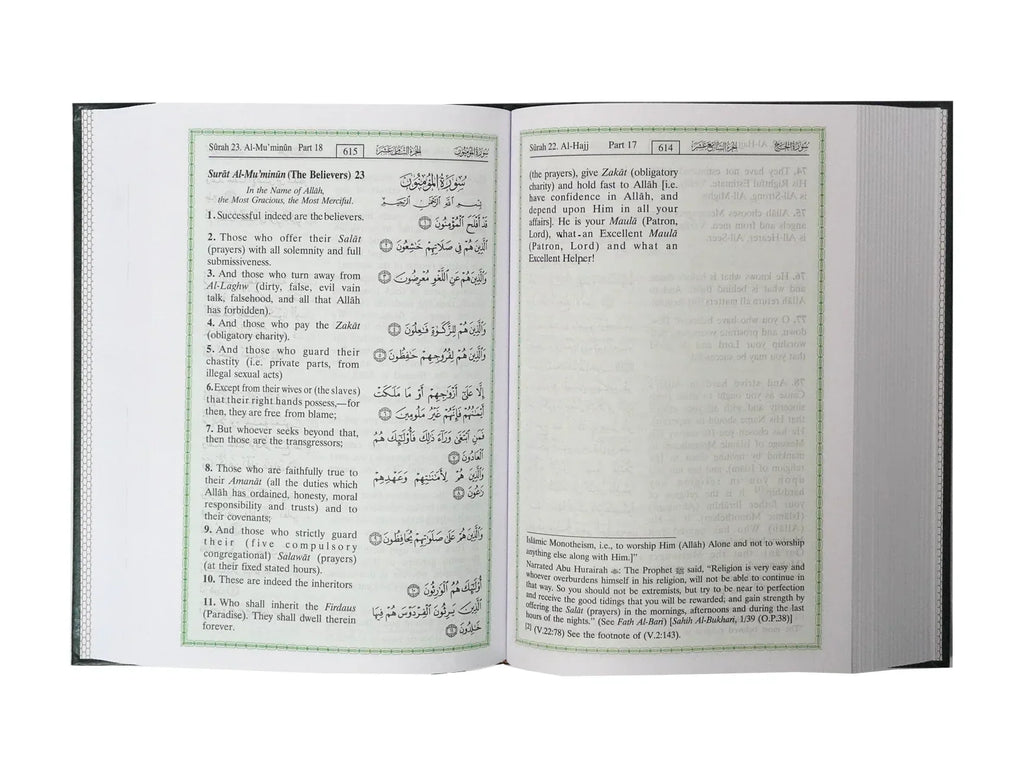 Sûrah 22. Al-Hajj Part 17 614 الجزء السابع عشر سورة الحج
(the prayers), give Zakât (obligatory
charity) and hold fast to Allâh [i.e.
have confidence in Allâh, and
depend upon Him in all your
affairs]. He is your Maulâ (Patron,
Lord), what an Excellent Maulâ
(Patron, Lord) and what an
Excellent Helper!
Islâmic Monotheism, i.e., to worship Him (Allâh) Alone and not to worship
anything else along with Him.]”
Narrated Abu Hurairah : The Prophet ﷺ said, “Religion is very easy and
whoever overburdens himself in his religion, will not be able to continue in
that way. So you should not be extremists, but try to be near to perfection
and receive the good tidings that you will be rewarded; and gain strength by
offering the Salât (prayers) in the mornings, afternoons and during the last
hours of the nights.” (See Fath Al-Bari) [Sahih Al-Bukhari, 1/39 (O.P.38)]
[2] (V.22:78) See the footnote of (V.2:143).
Sûrah 23. Al-Mu’minûn Part 18 615 الجزء الثامن عشر سورة المؤمنون
Surât Al-Mu’minûn (The Believers) 23
In the Name of Allâh,
the Most Gracious, the Most Merciful.
1. Successful indeed are the believers.
2. Those who offer their Salât
(prayers) with all solemnity and full
submissiveness.
3. And those who turn away from
Al-Laghw (dirty, false, evil vain
talk, falsehood, and all that Allâh
has forbidden).
4. And those who pay the Zakât
(obligatory charity).
5. And those who guard their
chastity (i.e. private parts, from
illegal sexual acts)
6. Except from their wives or (the slaves)
that their right hands possess,—for
then, they are free from blame;
7. But whoever seeks beyond that,
then those are the transgressors;
8. Those who are faithfully true to
their Amanât (all the duties which
Allâh has ordained, honesty, moral
responsibility and trusts) and to
their covenants;
9. And those who strictly guard
their (five compulsory
congregational) Salawât (prayers)
(at their fixed stated hours).
10. These are indeed the inheritors
11. Who shall inherit the Firdaus
(Paradise). They shall dwell therein
forever.
سُورَةُ المُؤْمِنُونَ
بِسْمِ اللَّهِ الرَّحْمَٰنِ الرَّحِيمِ
قَدْ أَفْلَحَ الْمُؤْمِنُونَ ١
الَّذِينَ هُمْ فِي صَلَاتِهِمْ خَاشِعُونَ ٢
وَالَّذِينَ هُمْ عَنِ اللَّغْوِ مُعْرِضُونَ ٣
وَالَّذِينَ هُمْ لِلزَّكَوٰةِ فَاعِلُونَ ٤
وَالَّذِينَ هُمْ لِفُرُوجِهِمْ حَافِظُونَ ٥
إِلَّا عَلَىٰ أَزْوَاجِهِمْ أَوْ مَا مَلَكَتْ
أَيْمَانُهُمْ فَإِنَّهُمْ غَيْرُ مَلُومِينَ ٦
فَمَنِ ابْتَغَىٰ وَرَاءَ ذَٰلِكَ فَأُولَٰئِكَ هُمُ
الْعَادُونَ ٧
وَالَّذِينَ هُمْ لِأَمَانَاتِهِمْ وَعَهْدِهِمْ
رَاعُونَ ٨
وَالَّذِينَ هُمْ عَلَىٰ صَلَوَاتِهِمْ يُحَافِظُونَ ٩
أُولَٰئِكَ هُمُ الْوَارِثُونَ ١٠
الَّذِينَ يَرِثُونَ الْفِرْدَوْسَ هُمْ فِيهَا
خَالِدُونَ ١١